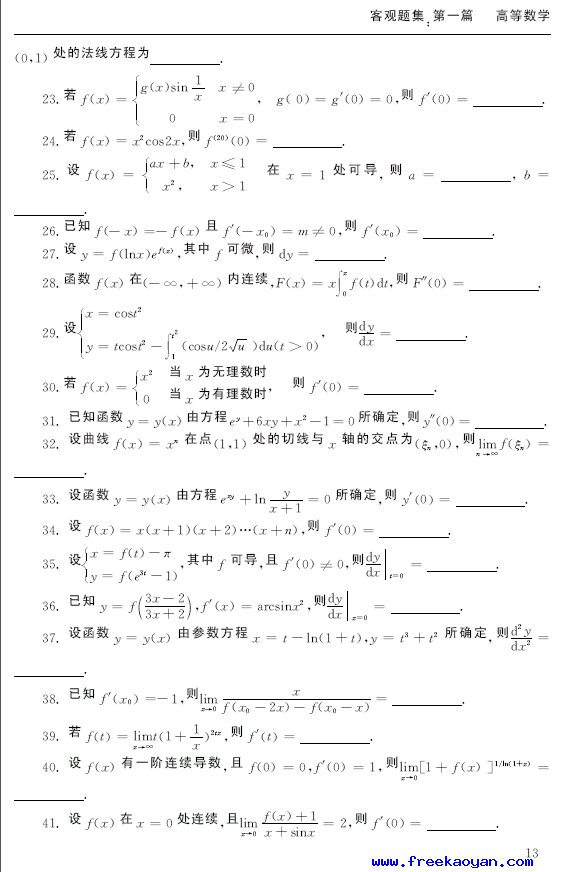 客观题集:第一篇 高等数学
(0,1) 处的法线方程为________.
23. 若 f(x) = { g(x)sin 1/x x ≠ 0, 0 x = 0 , g(0) = g′(0) = 0, 则 f′(0) = ________.
24. 若 f(x) = x²cos2x, 则 f⁽²⁰⁾(0) = ________.
25. 设 f(x) = { ax + b, x ⩽ 1 x², x > 1 在 x = 1 处可导, 则 a = ________, b =
________.
26. 已知 f(− x) =− f(x) 且 f′(− x₀) = m ≠ 0, 则 f′(x₀) = ________.
27. 设 y = f(lnx)e^{f(x)}, 其中 f 可微, 则 dy = ________.
28. 函数 f(x) 在(−∞,+∞) 内连续, F(x) = x∫₀ˣ f(t)dt, 则 F″(0) = ________.
29. 设 { x = cost² y = tcost² − ∫₁^{t²} (cosu/2√u )du(t > 0) , 则 dy/dx = ________.
30. 若 f(x) = { x² 当 x 为无理数时 0 当 x 为有理数时 , 则 f′(0) = ________.
31. 已知函数 y = y(x) 由方程 e^y + 6xy + x² − 1 = 0 所确定, 则 y″(0) = ________.
32. 设曲线 f(x) = xⁿ 在点(1,1) 处的切线与 x 轴的交点为(ξₙ,0), 则 lim_{n→∞} f(ξₙ) =
________.
33. 设函数 y = y(x) 由方程 e^{xy} + ln y/(x+1) = 0 所确定, 则 y′(0) = ________.
34. 设 f(x) = x(x+1)(x+2)…(x+n), 则 f′(0) = ________.
35. 设 { x = f(t) − π y = f(e^{3t} − 1) , 其中 f 可导, 且 f′(0) ≠ 0, 则 dy/dx |_{t=0} = ________.
36. 已知 y = f( (3x − 2)/(3x + 2) ), f′(x) = arcsinx², 则 dy/dx |_{x=0} = ________.
37. 设函数 y = y(x) 由参数方程 x = t − ln(1 + t), y = t³ + t² 所确定, 则 d²y/dx² =
________.
38. 已知 f′(x₀) =− 1, 则 lim_{x→0} x/(f(x₀ − 2x) − f(x₀ − x)) = ________.
39. 若 f(t) = lim_{x→∞} t(1 + 1/x)^{2tx}, 则 f′(t) = ________.
40. 设 f(x) 有一阶连续导数, 且 f(0) = 0, f′(0) = 1, 则 lim_{x→0} [1 + f(x) ]^{1/ln(1+x)} =
________.
41. 设 f(x) 在 x = 0 处连续, 且 lim_{x→0} (f(x) + 1)/(x + sinx) = 2, 则 f′(0) = ________.
13
www.freekaoyan.com